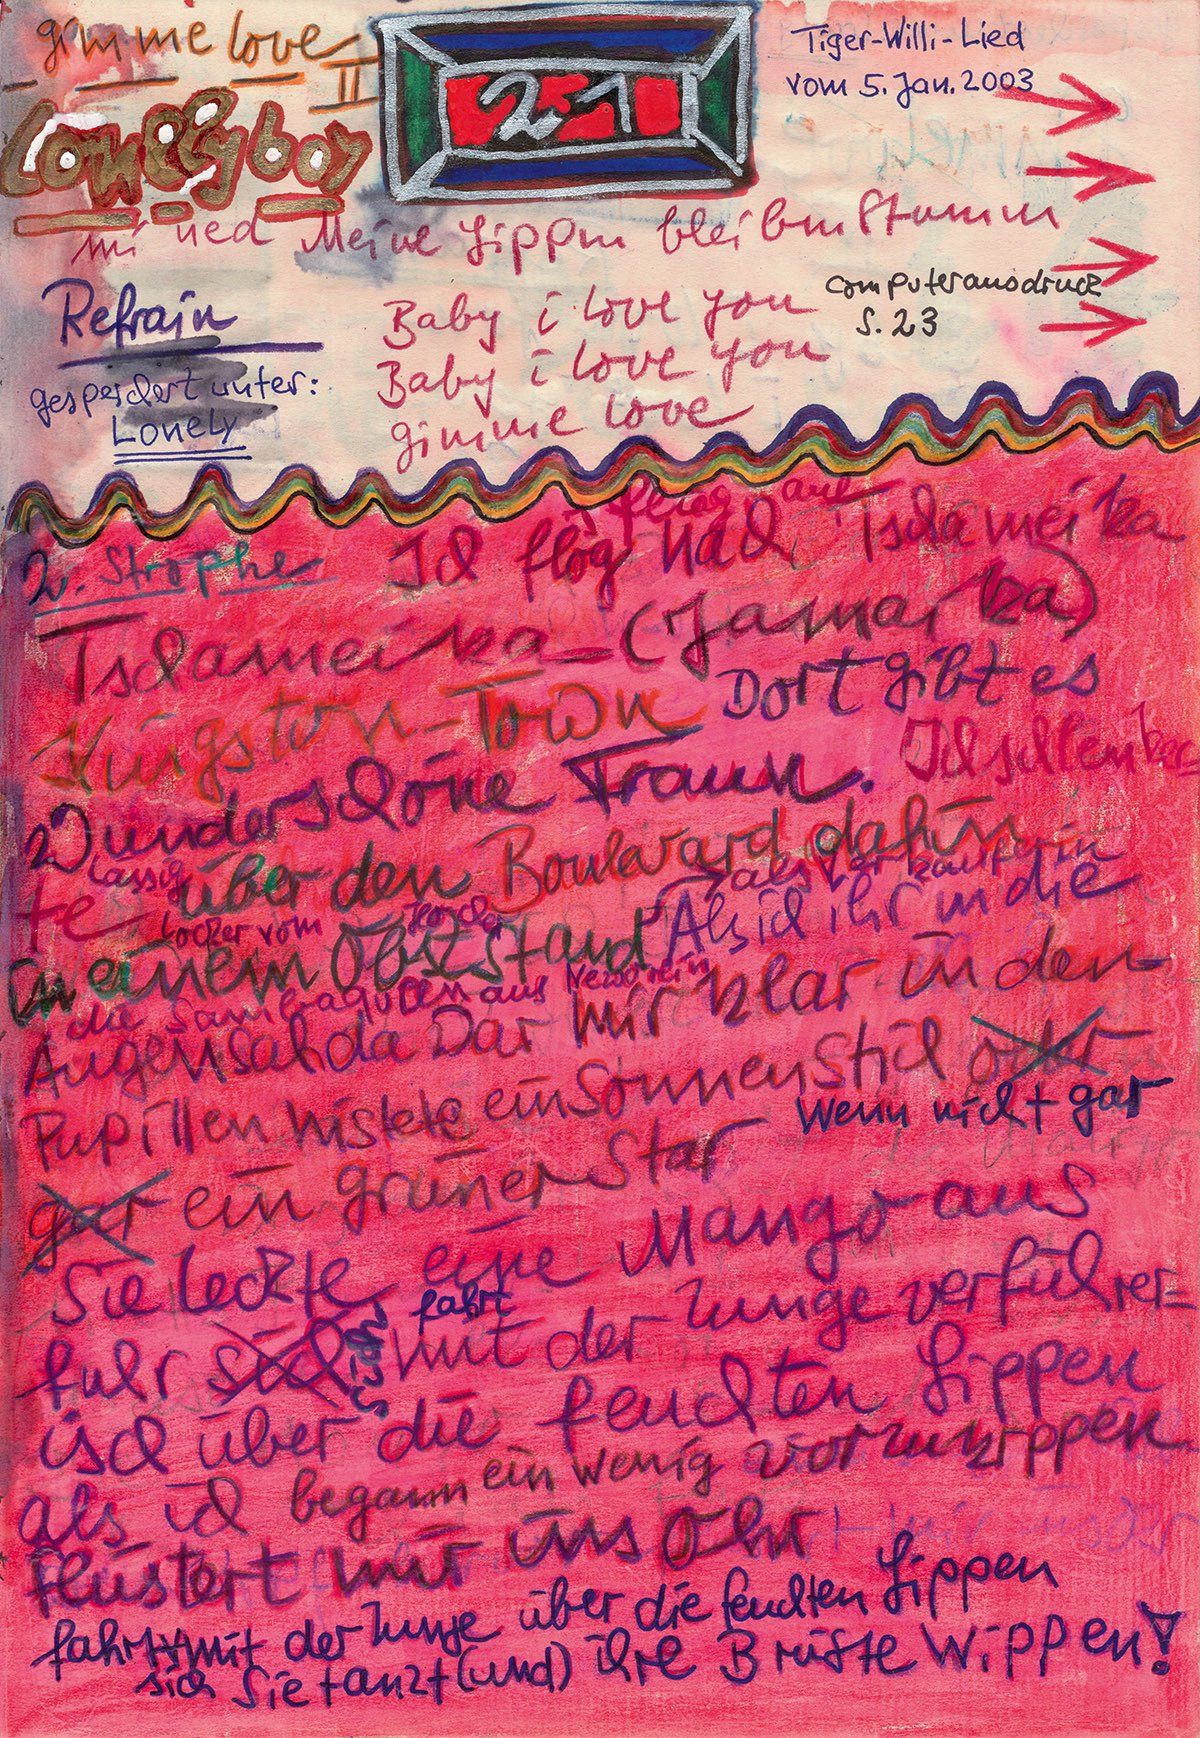 gimme love II
Lonelyboy
2.1
Tiger-Willi-Lied
vom 5. Jan. 2003
mi ned Meine Lippen bleiben Stumm
Refrain
gespeichert unter:
Lonely
Baby i love you
Baby i love you
gimme love
computerausdruck
S. 23
flieg auf
2. Strophe Ich flog nach Tschameika
Tschameika - (Jamaika)
Kingston-Town Dort gibt es
Wunderschöne Frauen. Ich schlender
lässig
te über den Boulevard dahin
locker vom Hocker als Verkäuferin
in einem Obststand Als ich ihr in die
die Sambagurken aus
Augen sah da war mir klar in den
Pupillen nistete ein Sonnenstich oder
Wenn nicht gar
gar ein grüner Star
Sie leckte eine Mango aus
fahrt
fuhr sich mit der Zunge verführer-
isch über die feuchten Lippen
als ich begann ein wenig vorzuwippen
flüstert mir ins Ohr
fahrt mit der Zunge über die feuchten Lippen
sich Sie tanzt (und) ihre Brüste wippen!